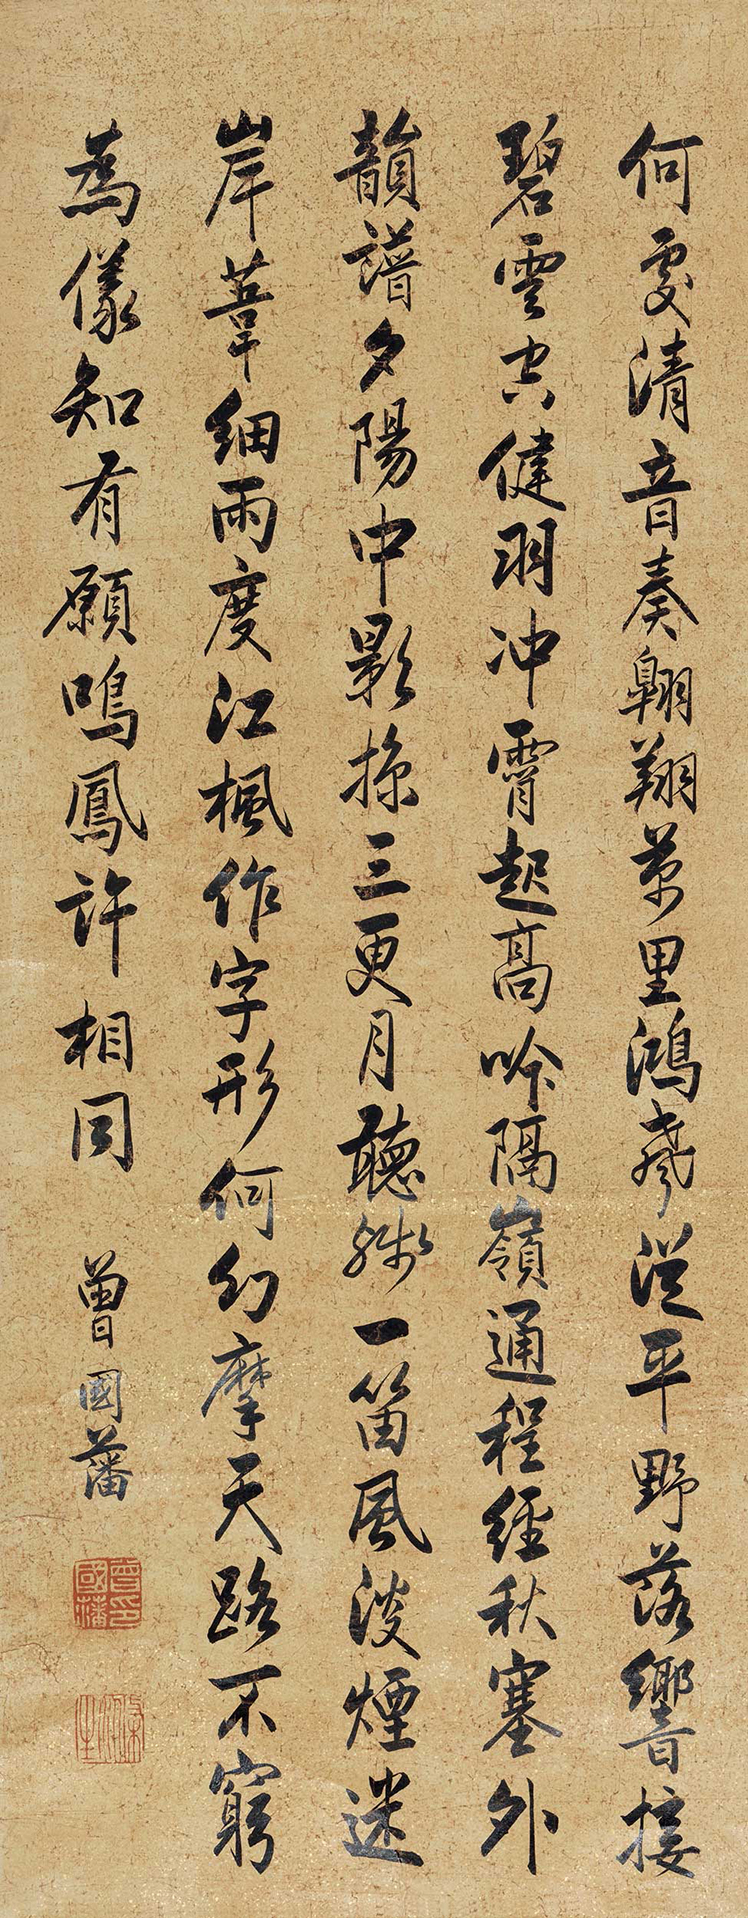 何處清音奏翱翔萬里鴻聲從平野落響接
碧雲空健羽冲霄起高吟隔嶺通程經秋塞外
韻譜夕陽中影掠三更月聽殘一笛風淡煙迷
岸葦細雨度江楓作字形何幻摩天路不窮
為儀知有願鳴鳳許相同
曾國藩
曾印國藩